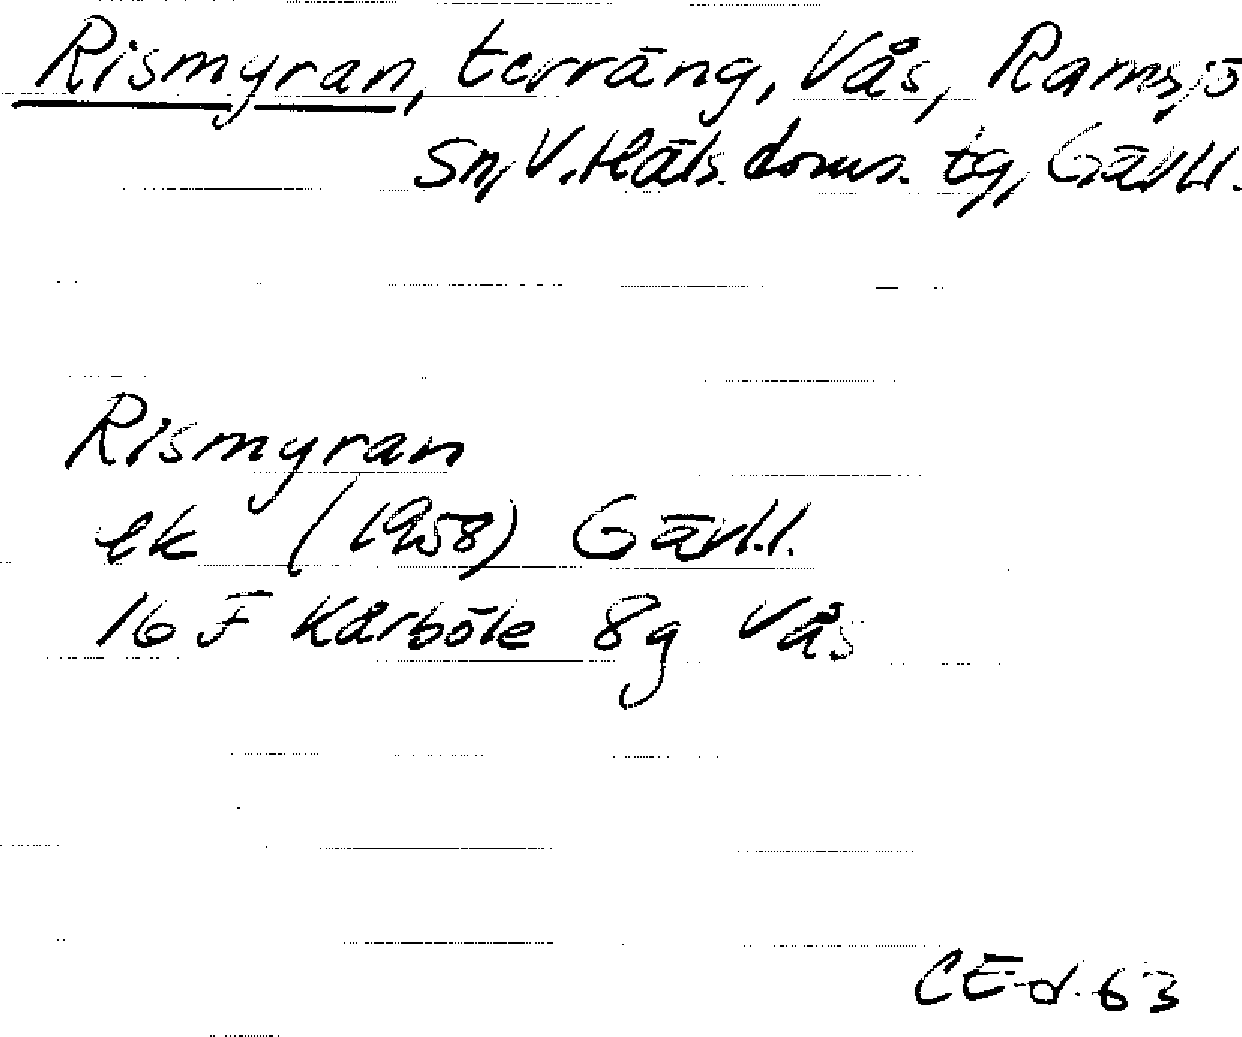 Rismyran, terräng, Vås, Ramsjö
sn, V. Häls. doms. tg, Gävl.l.
Rismyran
ek (1958) Gävl.l.
16 F Kårböle 8g Vås
CE-d. 63